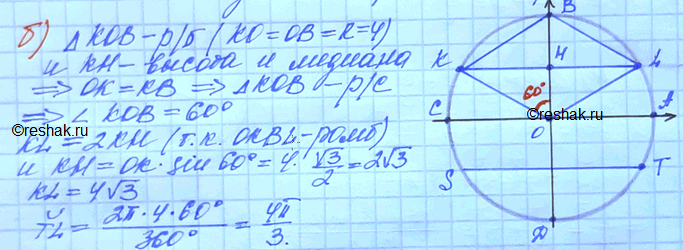 б) △ KOB - р/б (KO = OB = R = 4)
и KH - высота и медиана
⇒ OK = KB ⇒ △ KOB - р/с
⇒ ∠ KOB = 60°
KL = 2KH (т.к. OKBL - ромб)
и KH = OK · sin 60° = 4 · √3/2 = 2√3
KL = 4√3
T͝L = 2π · 4 · 60° / 360° = 4π / 3.
B
K
H
L
60°
C
A
O
S
T
D
©reshak.ru
©reshak.ru